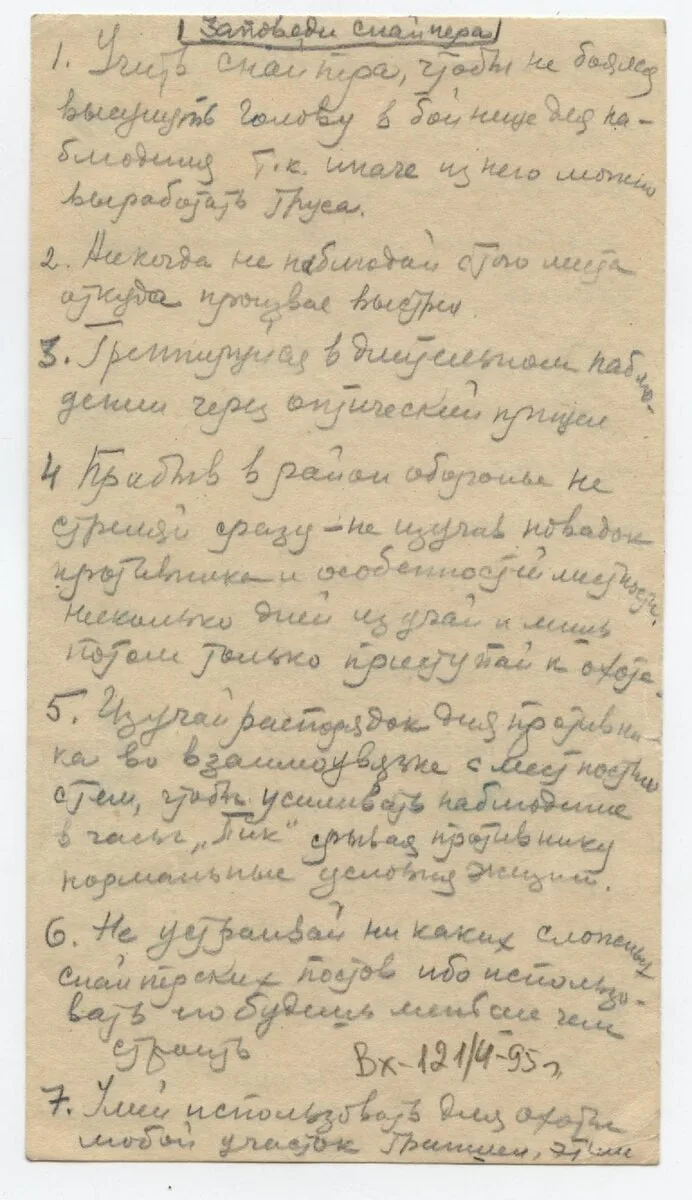 Заповеди снайпера
1. Учить снайпера, чтобы не боялся
высунуть голову в бойнице для на-
блюдения т.к. иначе из него можно
выработать труса.
2. Никогда не наблюдай с того места
откуда произвел выстрел
3. Тренируйся в длительном наблю-
дении через оптический прицел
4 Прибыв в район обороны не
стреляй сразу - не изучив повадок
противника и особенностей местности,
несколько дней изучай и лишь
потом только приступай к охоте.
5. Изучай распорядок дня противни-
ка во взаимоувязке с местностью
с тем, чтобы усиливать наблюдение
в часы „Пик" срывая противнику
нормальные условия жизни.
6. Не устраивай никаких сложных
снайперских постов ибо использо-
вать его будешь меньше чем
строить
Вх-121/4-95г.
7. Умей использовать для охоты
любой участок траншеи, этим